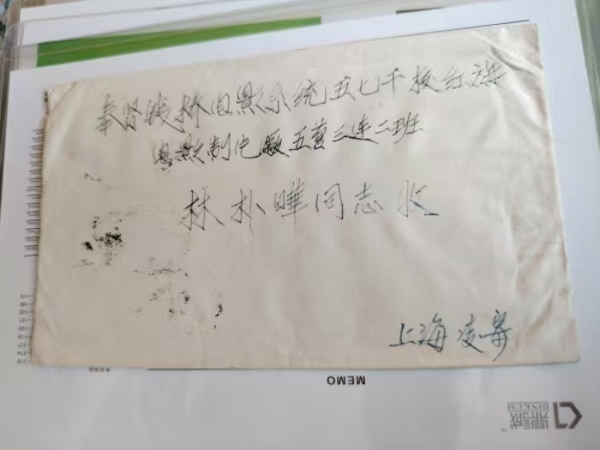 奉贤钱桥电影系统五七干校红旗
电影制片厂五营三连二班
林朴曄同志 收
上海凌寄
MEMO
GINKUM